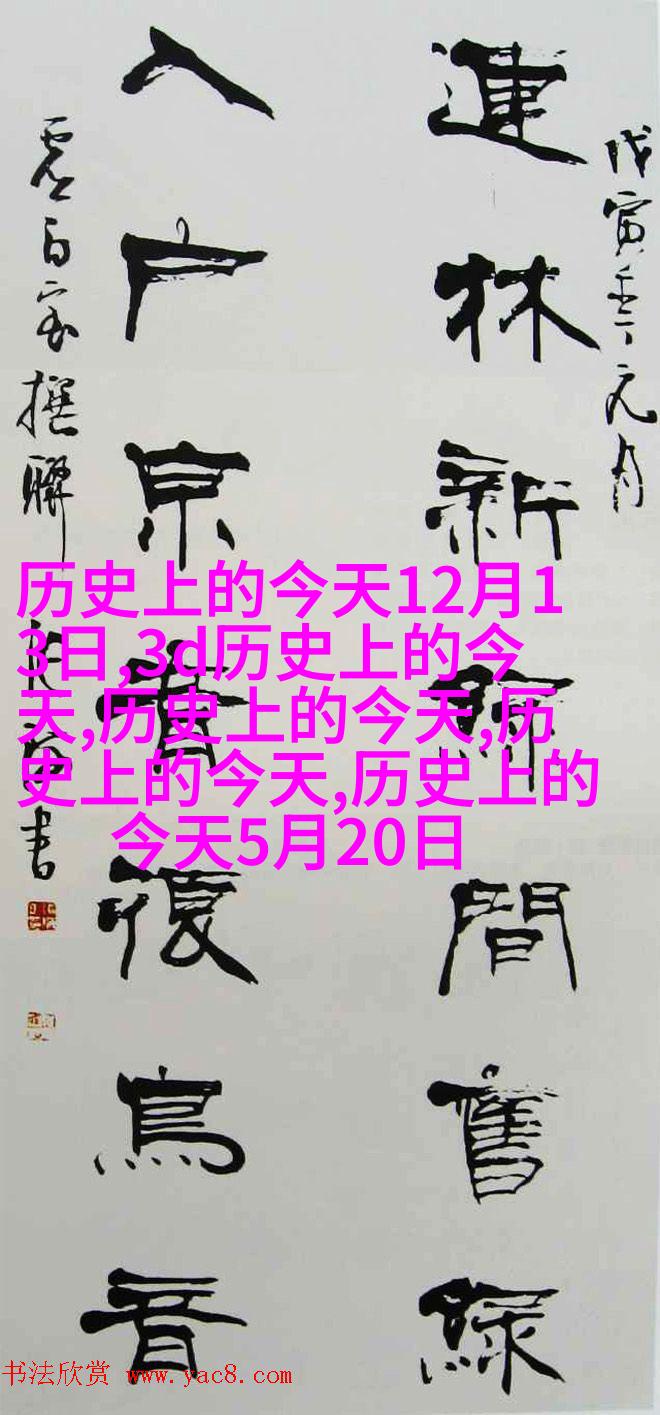 戊寅年元月
連林新綠間舊綠
入户京音復鳥音
虛白室撰聯
書
历史上的今天12月1
3日,3d历史上的今
天,历史上的今天,历
史上的今天,历史上的
今天5月20日
书法欣赏 www.yac8.com